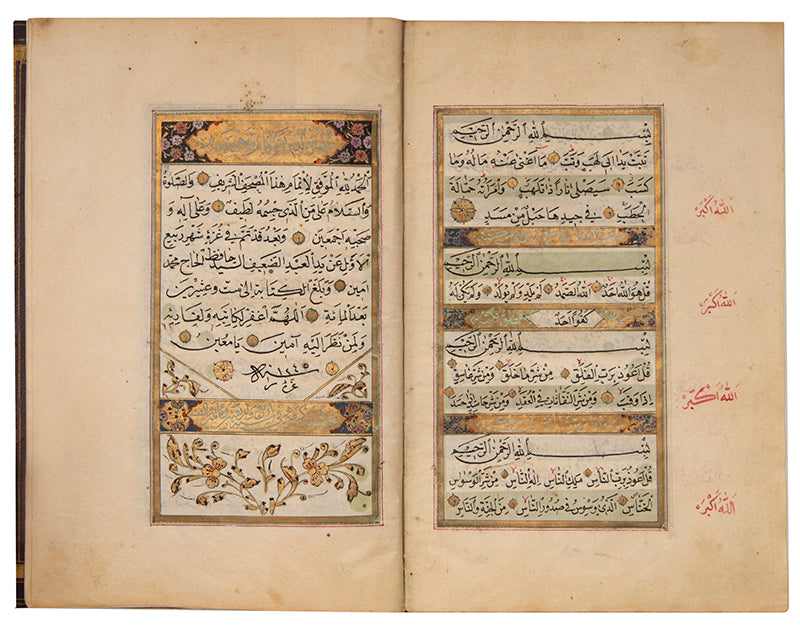 بِسْمِ اللهِ الرَّحْمٰنِ الرَّحِيمِ
تَبَّتْ يَدَا اَبِى لَهَبٍ وَتَبَّ مَا اَغْنٰى عَنْهُ مَالُهُ وَمَا
كَسَبَ سَيَصْلٰى نَارًا ذَاتَ لَهَبٍ وَامْرَاَتُهُ حَمَّالَةَ
الْحَطَبِ فِى جِيدِهَا حَبْلٌ مِنْ مَسَدٍ
بِسْمِ اللهِ الرَّحْمٰنِ الرَّحِيمِ
قُلْ هُوَ اللهُ اَحَدٌ اَللهُ الصَّمَدُ لَمْ يَلِدْ وَلَمْ يُولَدْ وَلَمْ يَكُنْ لَهُ
كُفُوًا اَحَدٌ
بِسْمِ اللهِ الرَّحْمٰنِ الرَّحِيمِ
قُلْ اَعُوذُ بِرَبِّ الْفَلَقِ مِنْ شَرِّ مَا خَلَقَ وَمِنْ شَرِّ غَاسِقٍ
اِذَا وَقَبَ وَمِنْ شَرِّ النَّفَّاثَاتِ فِى الْعُقَدِ وَمِنْ شَرِّ حَاسِدٍ اِذَا حَسَدَ
بِسْمِ اللهِ الرَّحْمٰنِ الرَّحِيمِ
قُلْ اَعُوذُ بِرَبِّ النَّاسِ مَلِكِ النَّاسِ اِلٰهِ النَّاسِ مِنْ شَرِّ الْوَسْوَاسِ
الْخَنَّاسِ الَّذِى يُوَسْوِسُ فِى صُدُورِ النَّاسِ مِنَ الْجِنَّةِ وَالنَّاسِ
اَللهُ اَكْبَرُ
اَللهُ اَكْبَرُ
اَللهُ اَكْبَرُ
اَللهُ اَكْبَرُ
الحمد لله الموفق لاتمام هذا المصحف الشريف والصلوة
والسلام على من الذى جسمه لطيف وعلى آله و
صحبه اجمعين وبعد قد تم فى غرة شهر ربيع
الاول عن يد العبد الضعيف السيد حافظ الحاج محمد
امين وبلغ الكتابة الى ست وعشرين
بعد المائة اللهم اغفر لكاتبه ولقاريه
ولمن نظر اليه آمين يا معين